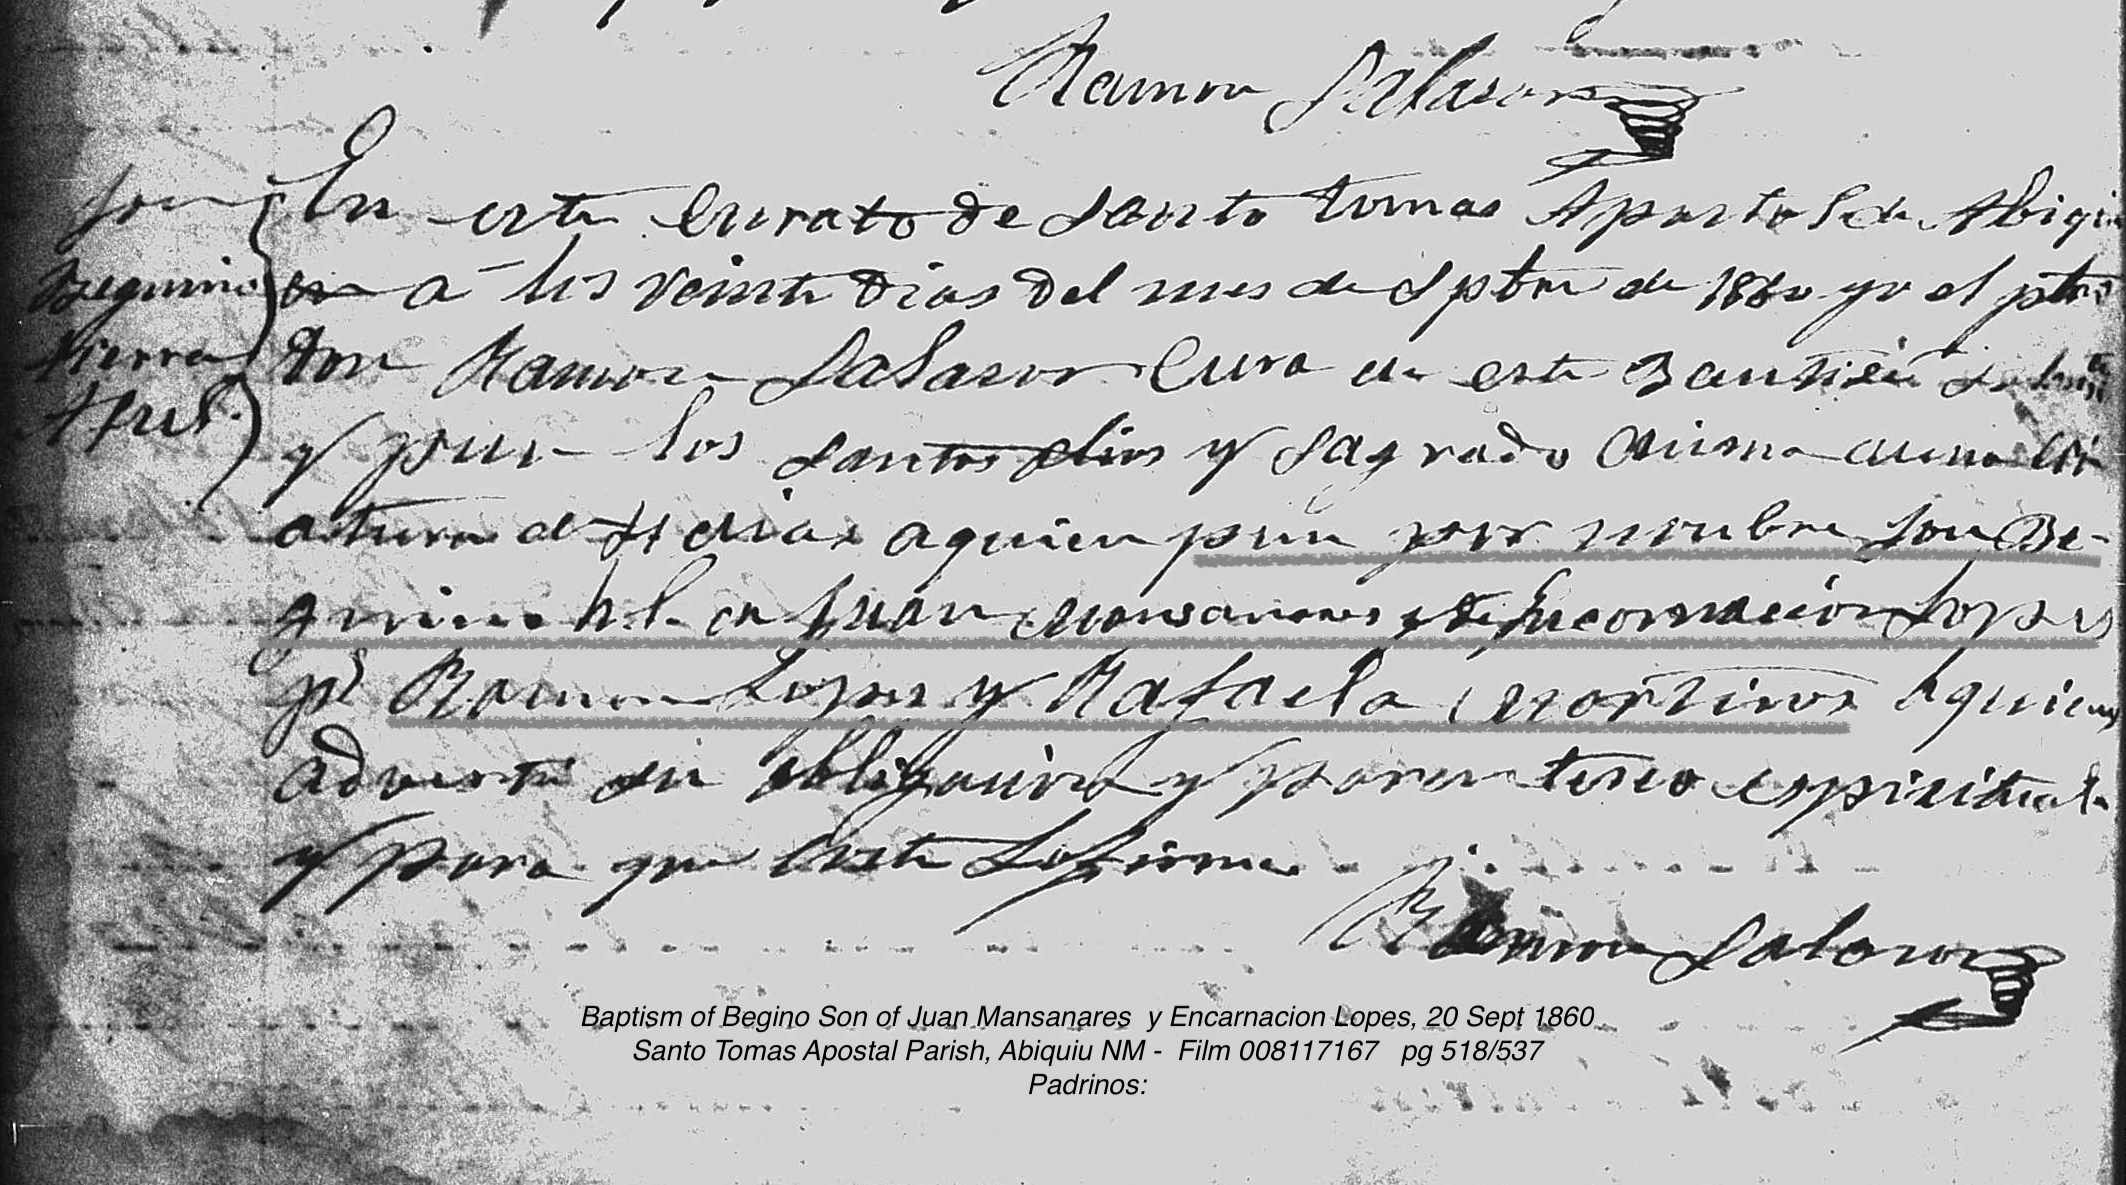 Ramon Salasar
En este Curato de Santo Tomas Apostol de Abiqui
a los veinte dias del mes de Sptre de 1860 yo el ptro
Don Ramon Salasar Cura de este Bautisé
y puse los Santos olios y Sagrado Crisma a una Cri
atura de dias a quien puse por nombre Jose Be-
h. l. de Juan Mansanares y de Encarnacion Lopes
ps Ramon Lopes y Rafaela Martines A quienes
adverti su obligacion y parentesco espiritual
y para que Conste Lo firme
Ramon Salasar
Jose
Tierra
Asul.
Baptism of Begino Son of Juan Mansanares y Encarnacion Lopes, 20 Sept 1860
Santo Tomas Apostal Parish, Abiquiu NM - Film 008117167 pg 518/537
Padrinos: